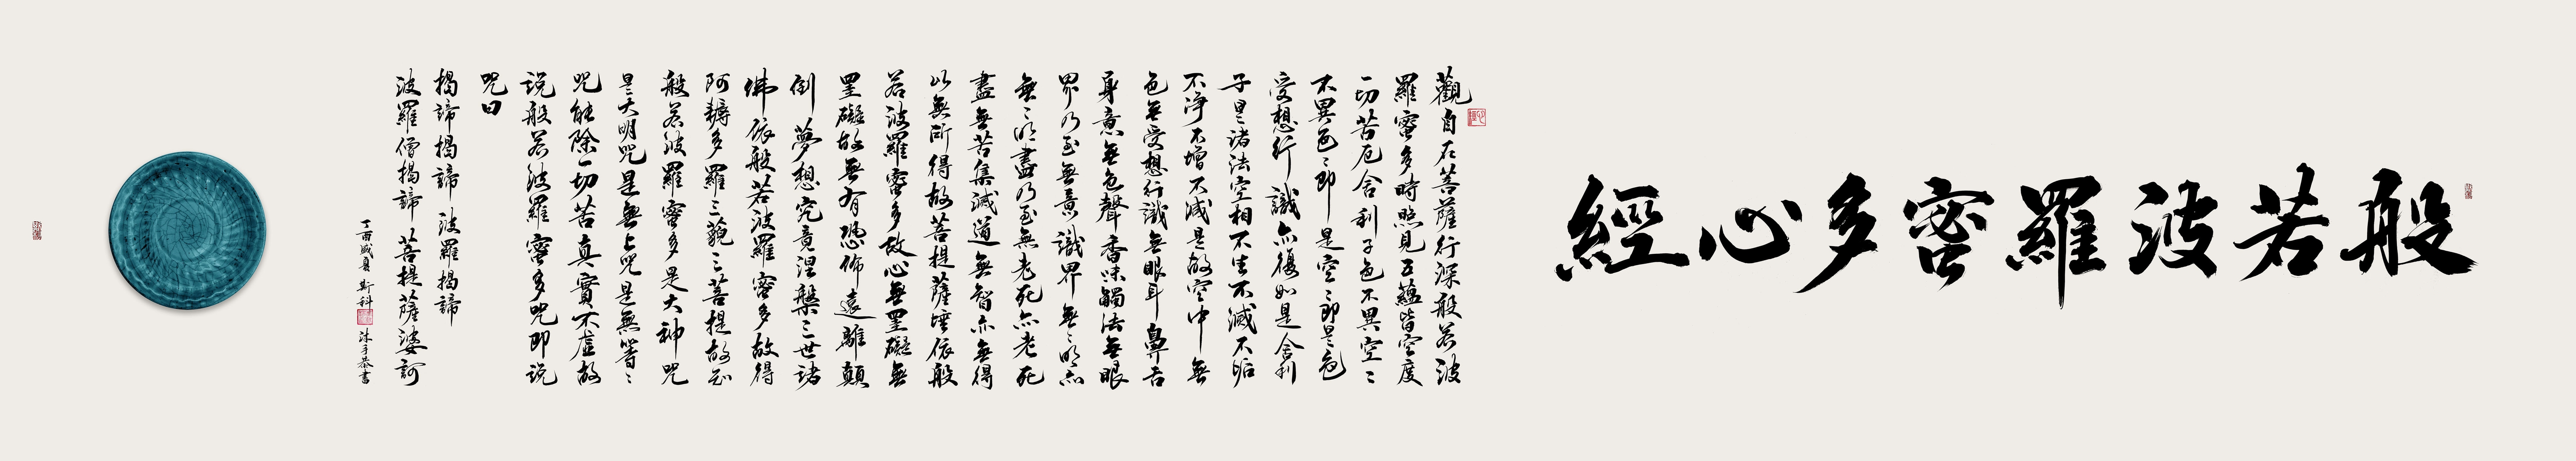 般若波羅蜜多心經
觀自在菩薩行深般若波
羅蜜多時照見五蘊皆空度
一切苦厄舍利子色不異空〻
不異色〻即是空〻即是色
受想行識亦復如是舍利
子是諸法空相不生不滅不垢
不淨不增不減是故空中無
色無受想行識無眼耳鼻舌
身意無色聲香味觸法無眼
界乃至無意識界無〻明亦
無〻明盡乃至無老死亦老死
盡無苦集滅道無智亦無得
以無所得故菩提薩埵依般
若波羅蜜多故心無罣礙無
罣礙故無有恐怖遠離顛
倒夢想究竟涅槃三世諸
佛依般若波羅蜜多故得
阿耨多羅三藐三菩提故知
般若波羅蜜多是大神咒
是大明咒是無上咒是無等〻
咒能除一切苦真實不虛故
說般若波羅蜜多咒即說
咒曰
揭諦揭諦 波羅揭諦
波羅僧揭諦 菩提薩婆訶
丁酉盛夏 斯科 沐手恭書